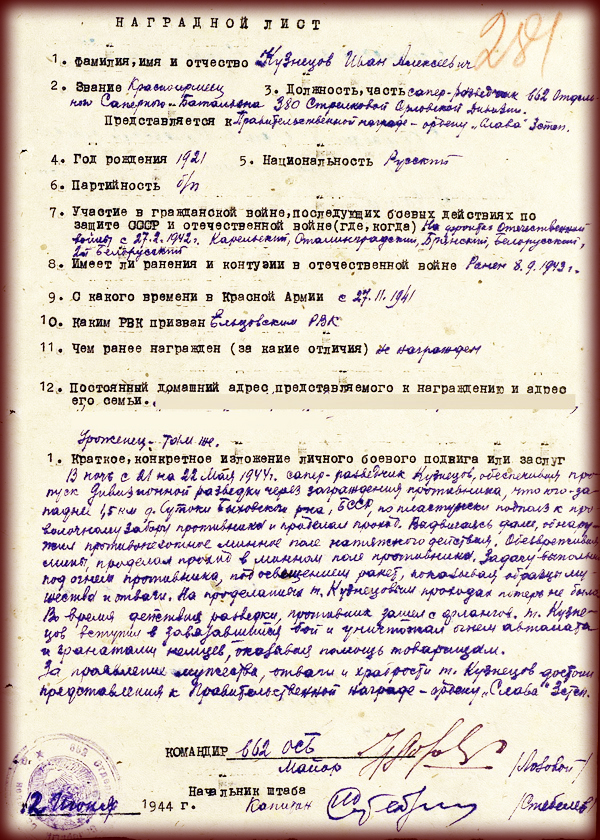 НАГРАДНОЙ ЛИСТ
281
1. Фамилия, имя и отчество Кузнецов Иван Алексеевич
2. Звание Красноармеец 3. Должность, часть сапер-разведчик 662 Отдель-
ного Саперного Батальона 380 Стрелковой Орловской Дивизи.
Представляется к Правительственной награде - ордену „Слава" 3 степ.
4. Год рождения 1921 5. Национальность Русский
6. Партийность б/п
7. Участие в гражданской войне, последующих боевых действиях по
защите СССР и отечественной войне (где, когда) На фронтах Отечественной
войны с 27.2.1942г. Карельский, Сталинградский, Брянский, Белорусский,
2й Белорусский
8. Имеет ли ранения и контузии в отечественной войне Ранен 8.9.1943 г.
9. С какого времени в Красной Армии с 27.11.1941
10. Каким РВК призван Ельцовским РВК
11. Чем ранее награжден (за какие отличия) не награжден
12. Постоянный домашний адрес представляемого к награждению и адрес
его семьи.
Уроженец - там же.
1. Краткое, конкретное изложение личного боевого подвига или заслуг
В ночь с 21 на 22 мая 1944г. сапер-разведчик Кузнецов, обеспечивая про-
пуск дивизионной разведки через заграждения противника, что юго-за-
падней 1,5 км д. Сутоки Быховского р-на, БССР, по пластунски подполз к про-
волочному забору противника и проделал проход. Вадвигаясь далее, обнару-
жил противопехотное минное поле натяжного действия. Обезвреживая
мины, проделал проход в минном поле противника. Задачу выполнял
под огнем противника, под освещением ракет, показывая образцы му-
жества и отваги. На проделанных т. Кузнецовым проходах потерь не было.
Во время действия разведки, противник зашел с флангов. т. Кузне-
цов вступил в завязавшийся бой и уничтожал огнем автомата
и гранатами немцев, оказывая помощь товарищам.
За проявление мужества, отваги и храбрости т. Кузнецов достоин
представления к Правительственной награде - ордену „Слава" 3 степ.
КОМАНДИР 662 ОСБ
Майор /Лозовой/
Начальник штаба
2 Июня 1944 г. Капитан /Стебелев/